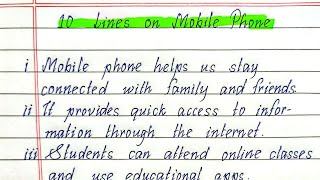 10 Lines on Mobile Phone
i Mobile phone helps us stay
connected with family and friends
ii It provides quick access to infor-
mation through the internet.
iii Students can attend online classes
and use educational apps.